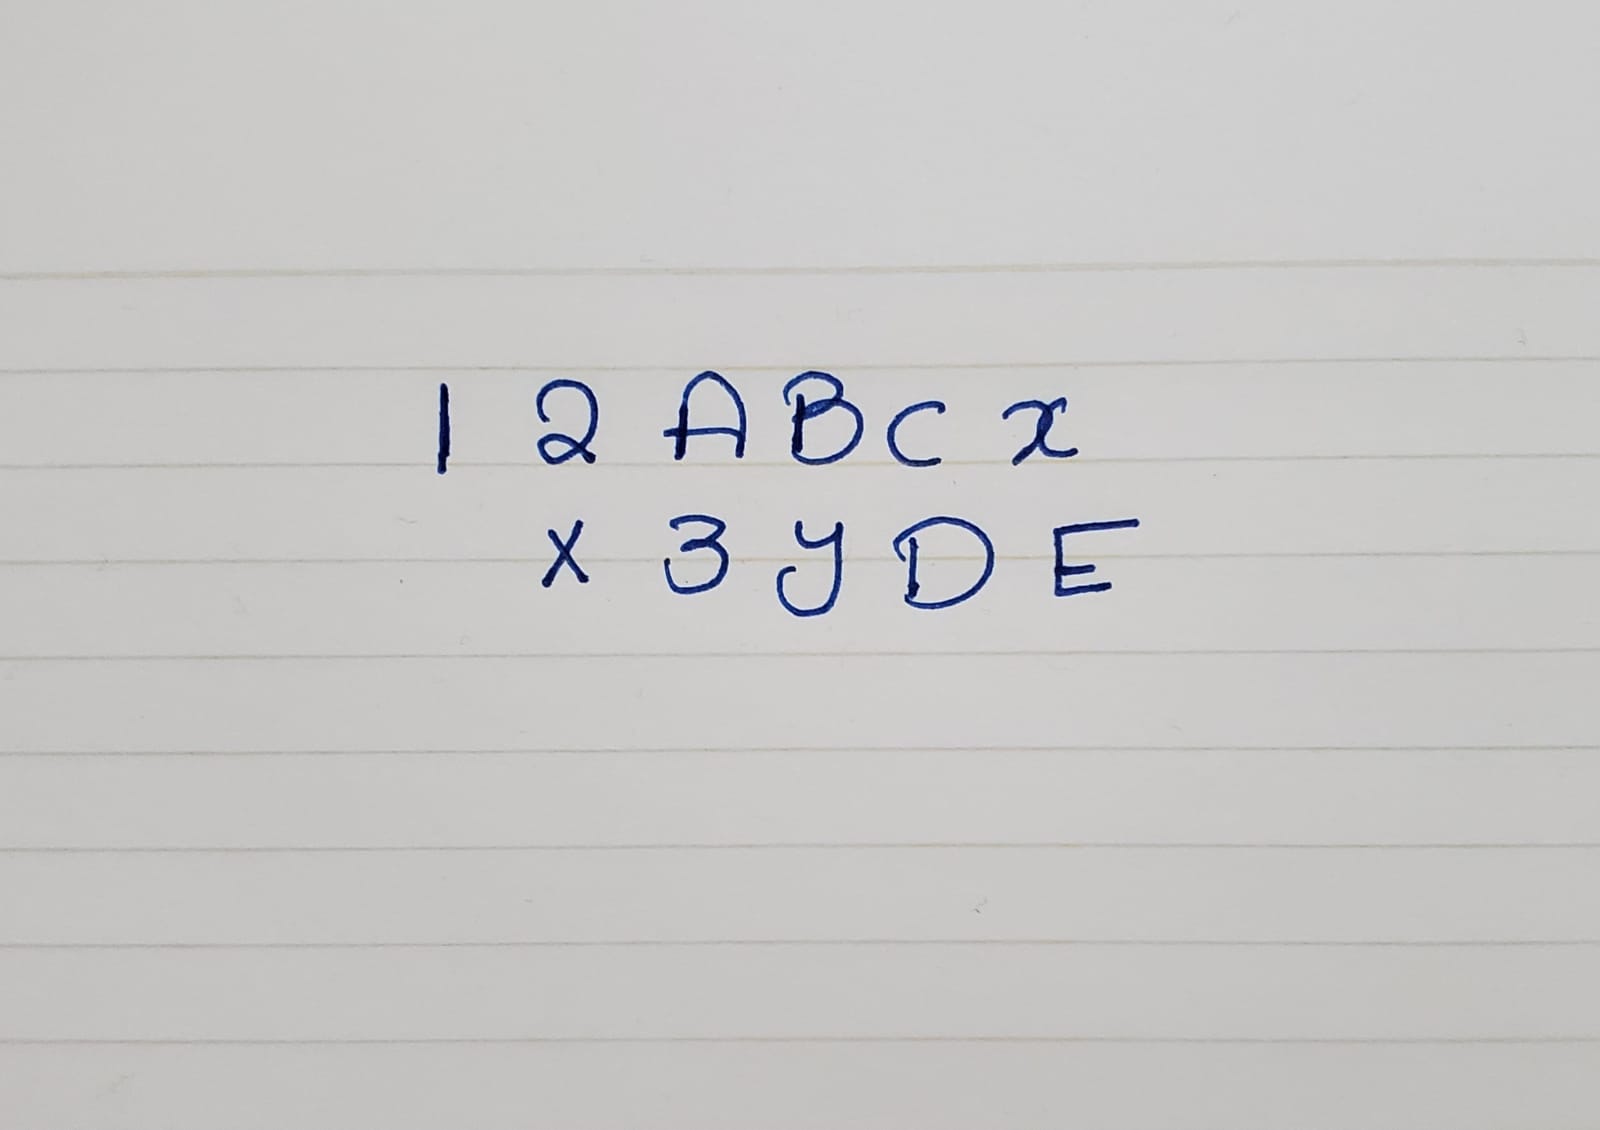 1 2 A B C x
x 3 y D E